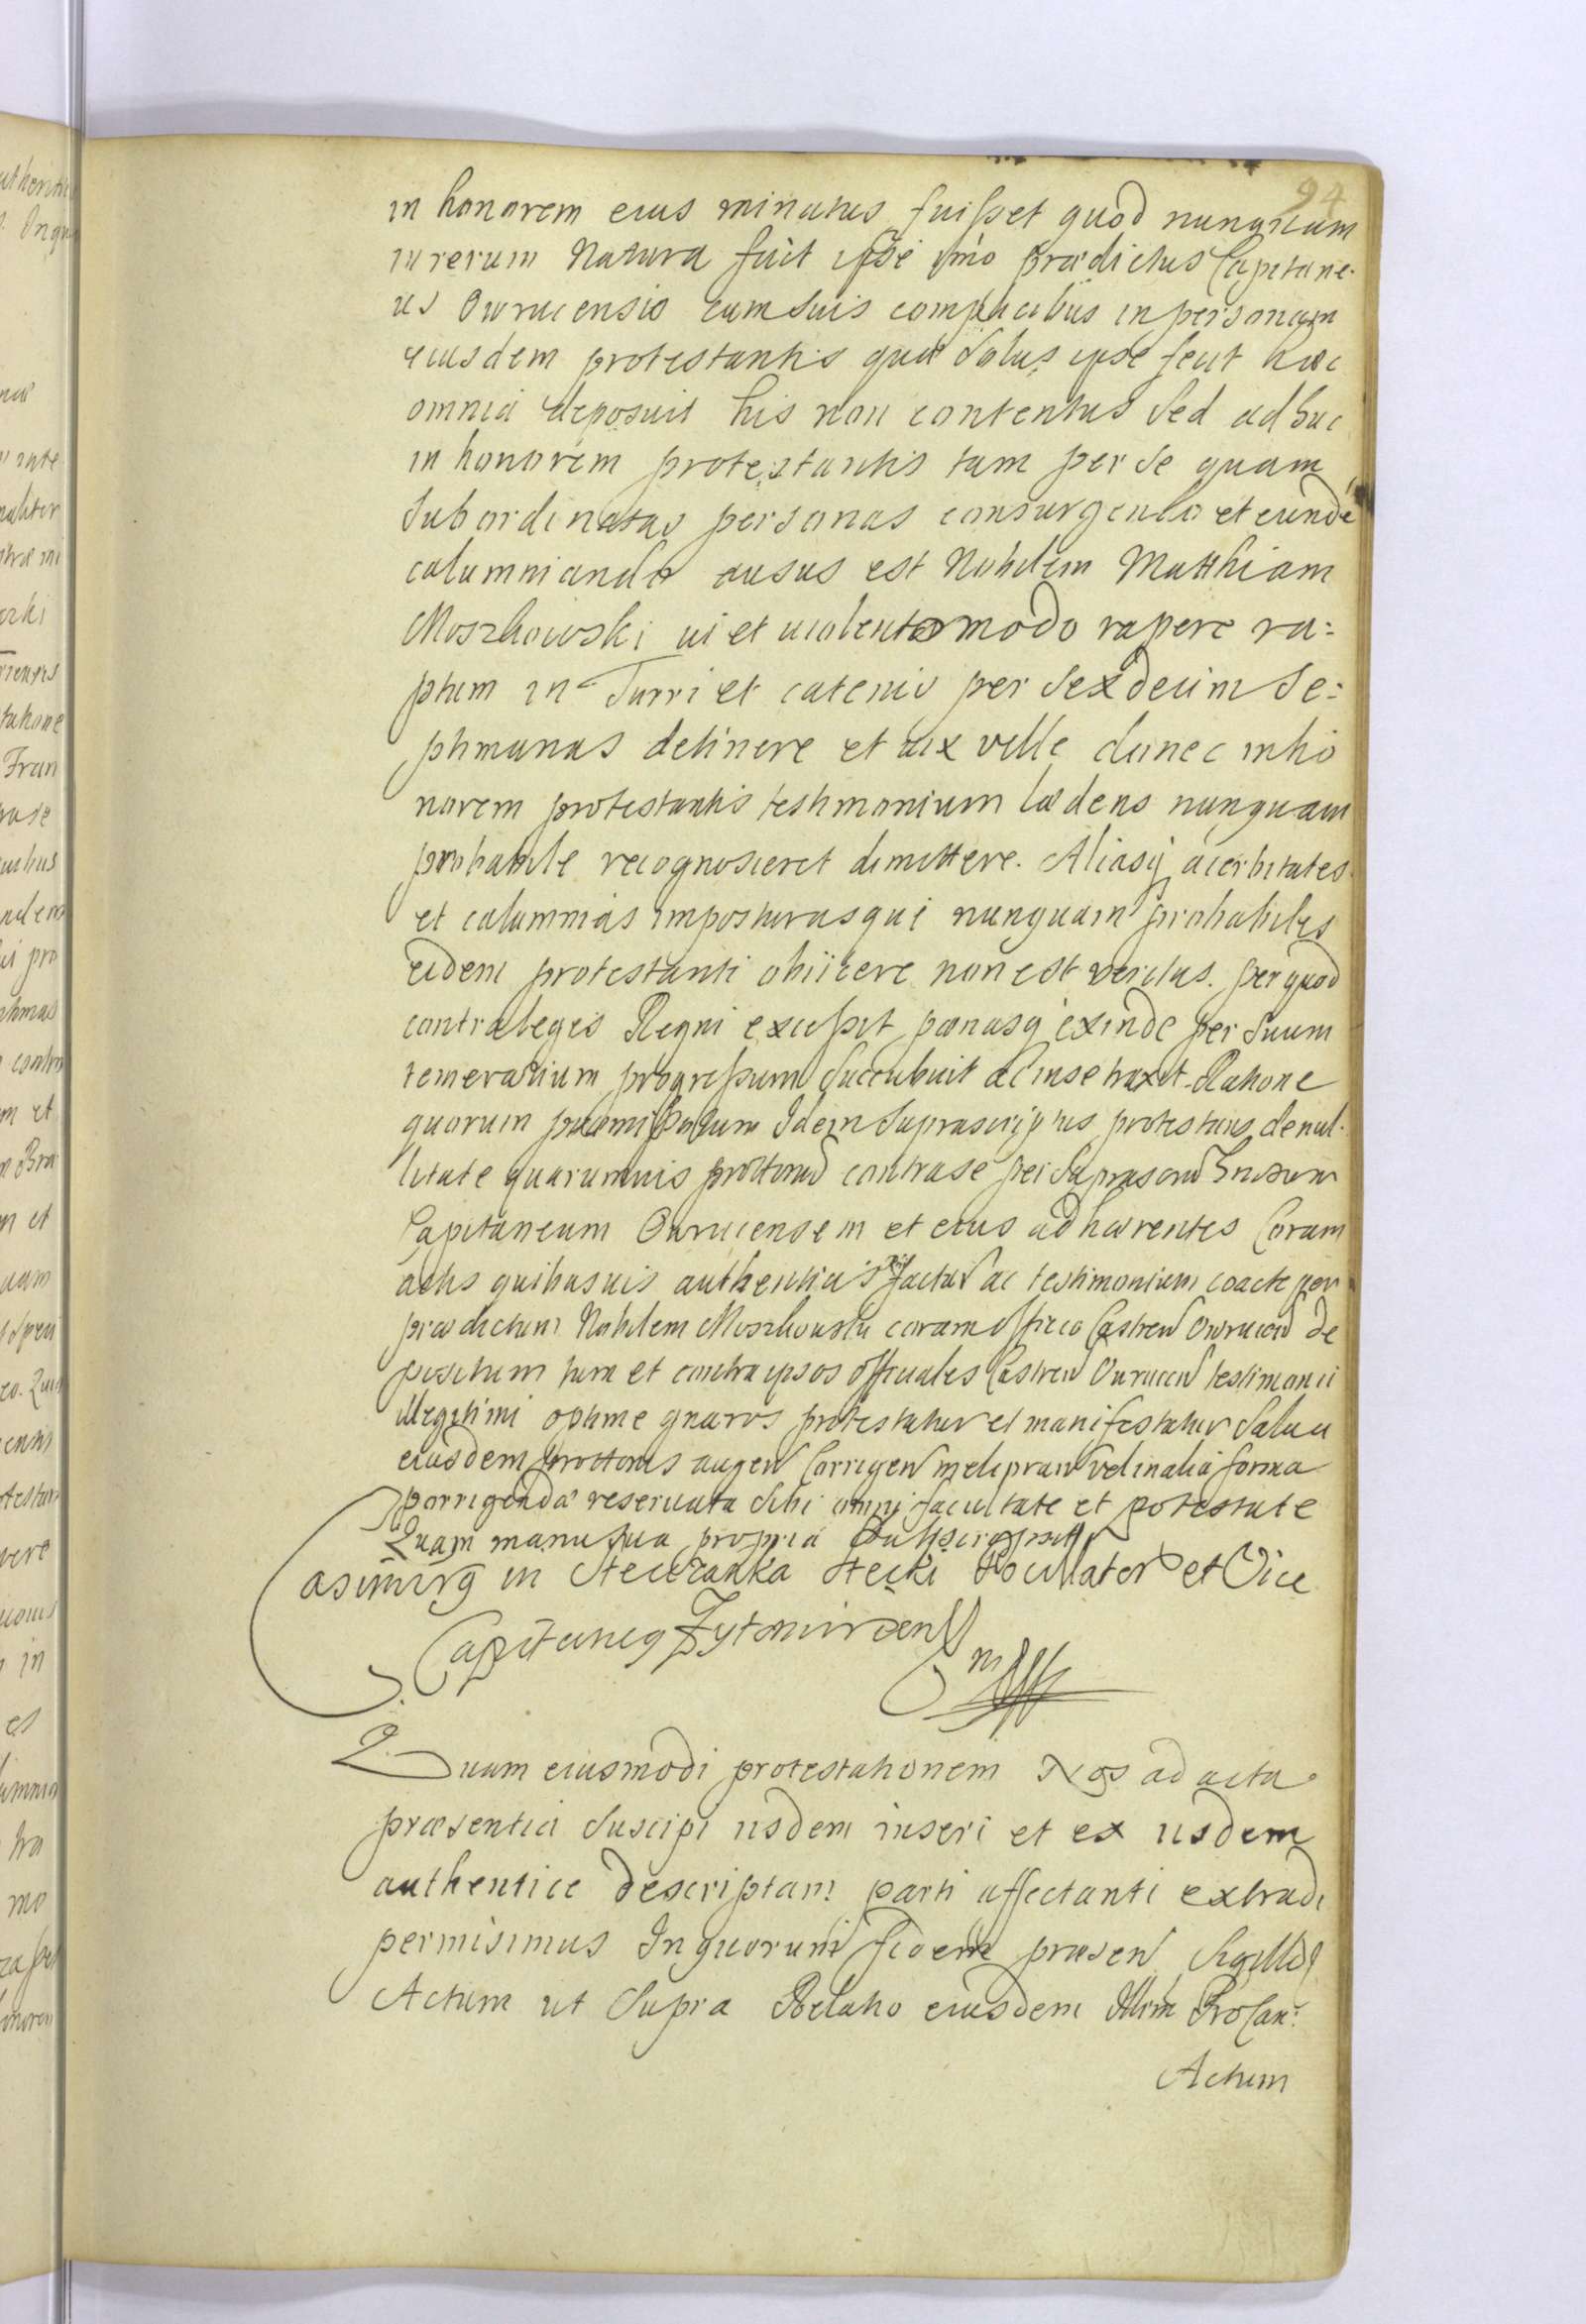 94
in honorem eius minatus fuisset quod nunquam
in rerum Natura fuit ipse imo prædictus Capitane-
us Owrucensis cum suis complicibus in personam
eiusdem protestantis quæ solus ipse fecit hæc
omnia deposuit his non contentus sed adhuc
in honorem protestantis tam per se quam
subordinatas personas consurgendo et eundē
calumniando ausus est Nobilem Matthiam
Moszkowski vi et violento modo rapere ra=
ptum in Turri et catenis per sexdecim se=
ptimanas detinere et vix velle donec in ho
norem protestantis testimonium lædens nunquam
probabile recognosceret dimittere. Aliasq acerbitates
et calumnias imposturasque nunquam probabiles
eidem protestanti obiicere non est veritus. per quod
contra leges Regni excessit pœnasq exinde per suum
temerarium progressum succubuit ac in se traxit. Ratione
quorum præmissorum Idem suprascriptus protestans de nul-
litate quarumvis prottonū contra se per suprascrip
Capitaneum Owrucensem et eius adhærentes Coram
actis quibusvis authenticis factas ac testimonium coacte per
prædictum Nobilem Moszkowski coram officio Castren Owrucen de
positum tum et contra ipsos officiales Castren Owrucen testimonii
illegitimi optime gnaros protestatur et manifestatur Salva
eiusdem prottonis augen Corrigen melioran vel in alia forma
porrigenda reservata sibi omni facultate et potestate
Quam manu sua propria subscripsit
Casimirg in Steczanka Stecki Pocillator et Vice
Capitaneg Zytomiriens
mp
Quam eiusmodi protestationem Nos ad acta
præsentia suscipi iisdem inseri et ex iisdem
authentice descriptam parti affectanti extradi
permisimus In quorum fidem præsen Sigillo
Actum ut supra Relatio eiusdem Illrm ProCan:
Actum